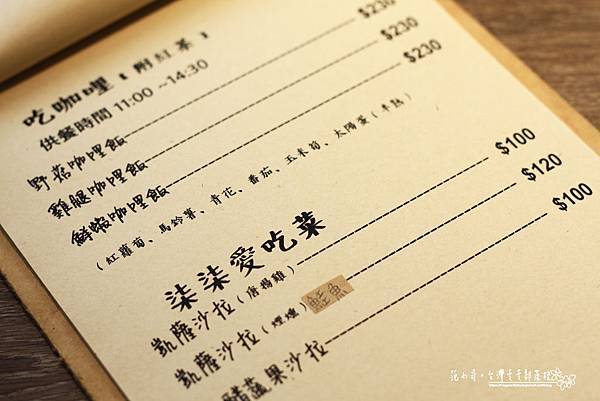 吃咖哩(附紅茶)
供餐時間 11:00 ~14:30
野菇咖哩飯 $230
雞腿咖哩飯 $230
鮮蝦咖哩飯 $230
(紅蘿蔔、馬鈴薯、青花、番茄、玉米筍、太陽蛋(半熟)
柒柒愛吃菜
凱薩沙拉(唐揚雞) $100
凱薩沙拉(煙燻)鮭魚 $120
蔬果沙拉 $100